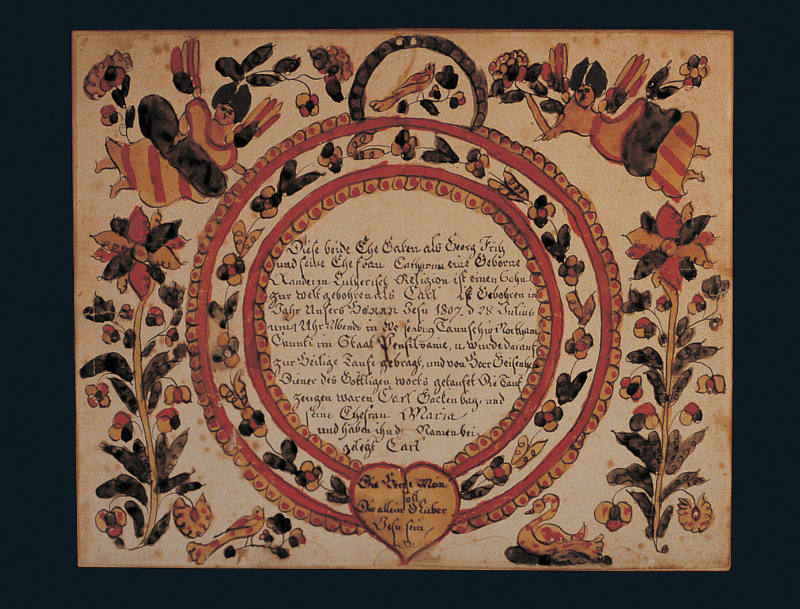 Diese beide Ehe Gaben als Georg Fritz
und seine Ehe frau Catharina eine Geborne
Wanderin Lutherisch Religion ist einen Sohn
zur welt gebohren als Carl ist Gebohren im
Jahr Unsers HERRN Jesu 1807 d 28 Julius
um 5 Uhr Abends in Taunschip Northam
Caunti im Staat Pensilvanie, u. wurde darauf
zur Heilige Taufe gebragt, und von Herr
Diener des Göttligen worts getauft Die Tauf
zeugen waren Carl Hackenbag, und
seine Ehefrau Maria
und haben ihn d Namen bei
gelegt Carl
Die Man
soll
Dir allein O Lieber
Jesu sein